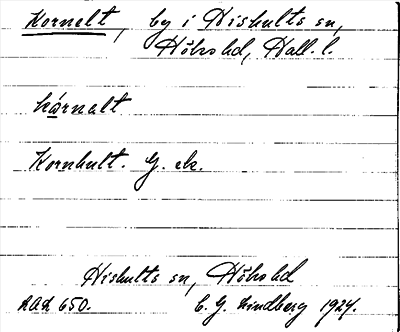 Kornalt, by i Hishults sn,
Höks hd, Hall. l.
kárnalt
Kornhult. G. ek.
Hishults sn, Höks hd
RAÄ 650. C. G. Lindberg 1924.